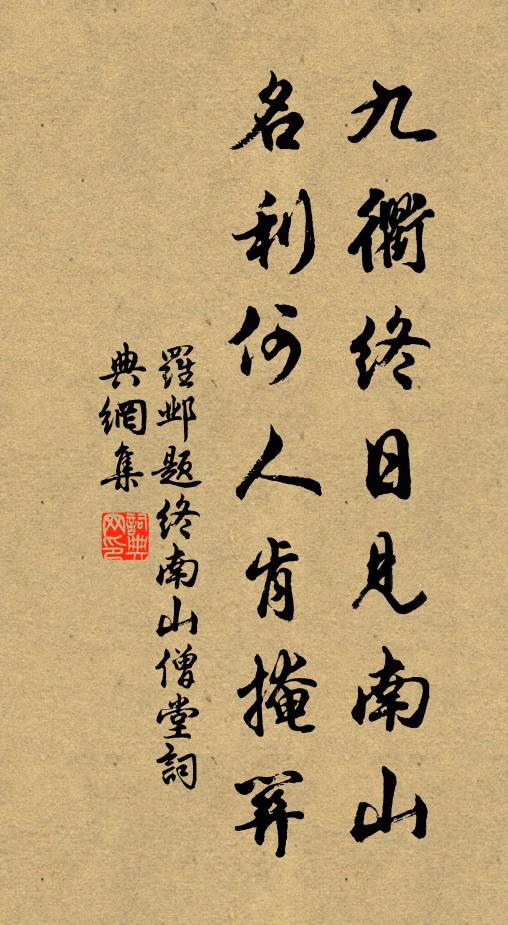 九衢終日見南山
名利何人肯掩關
羅邺題終南山僧堂詞
典網集
詞典
网印